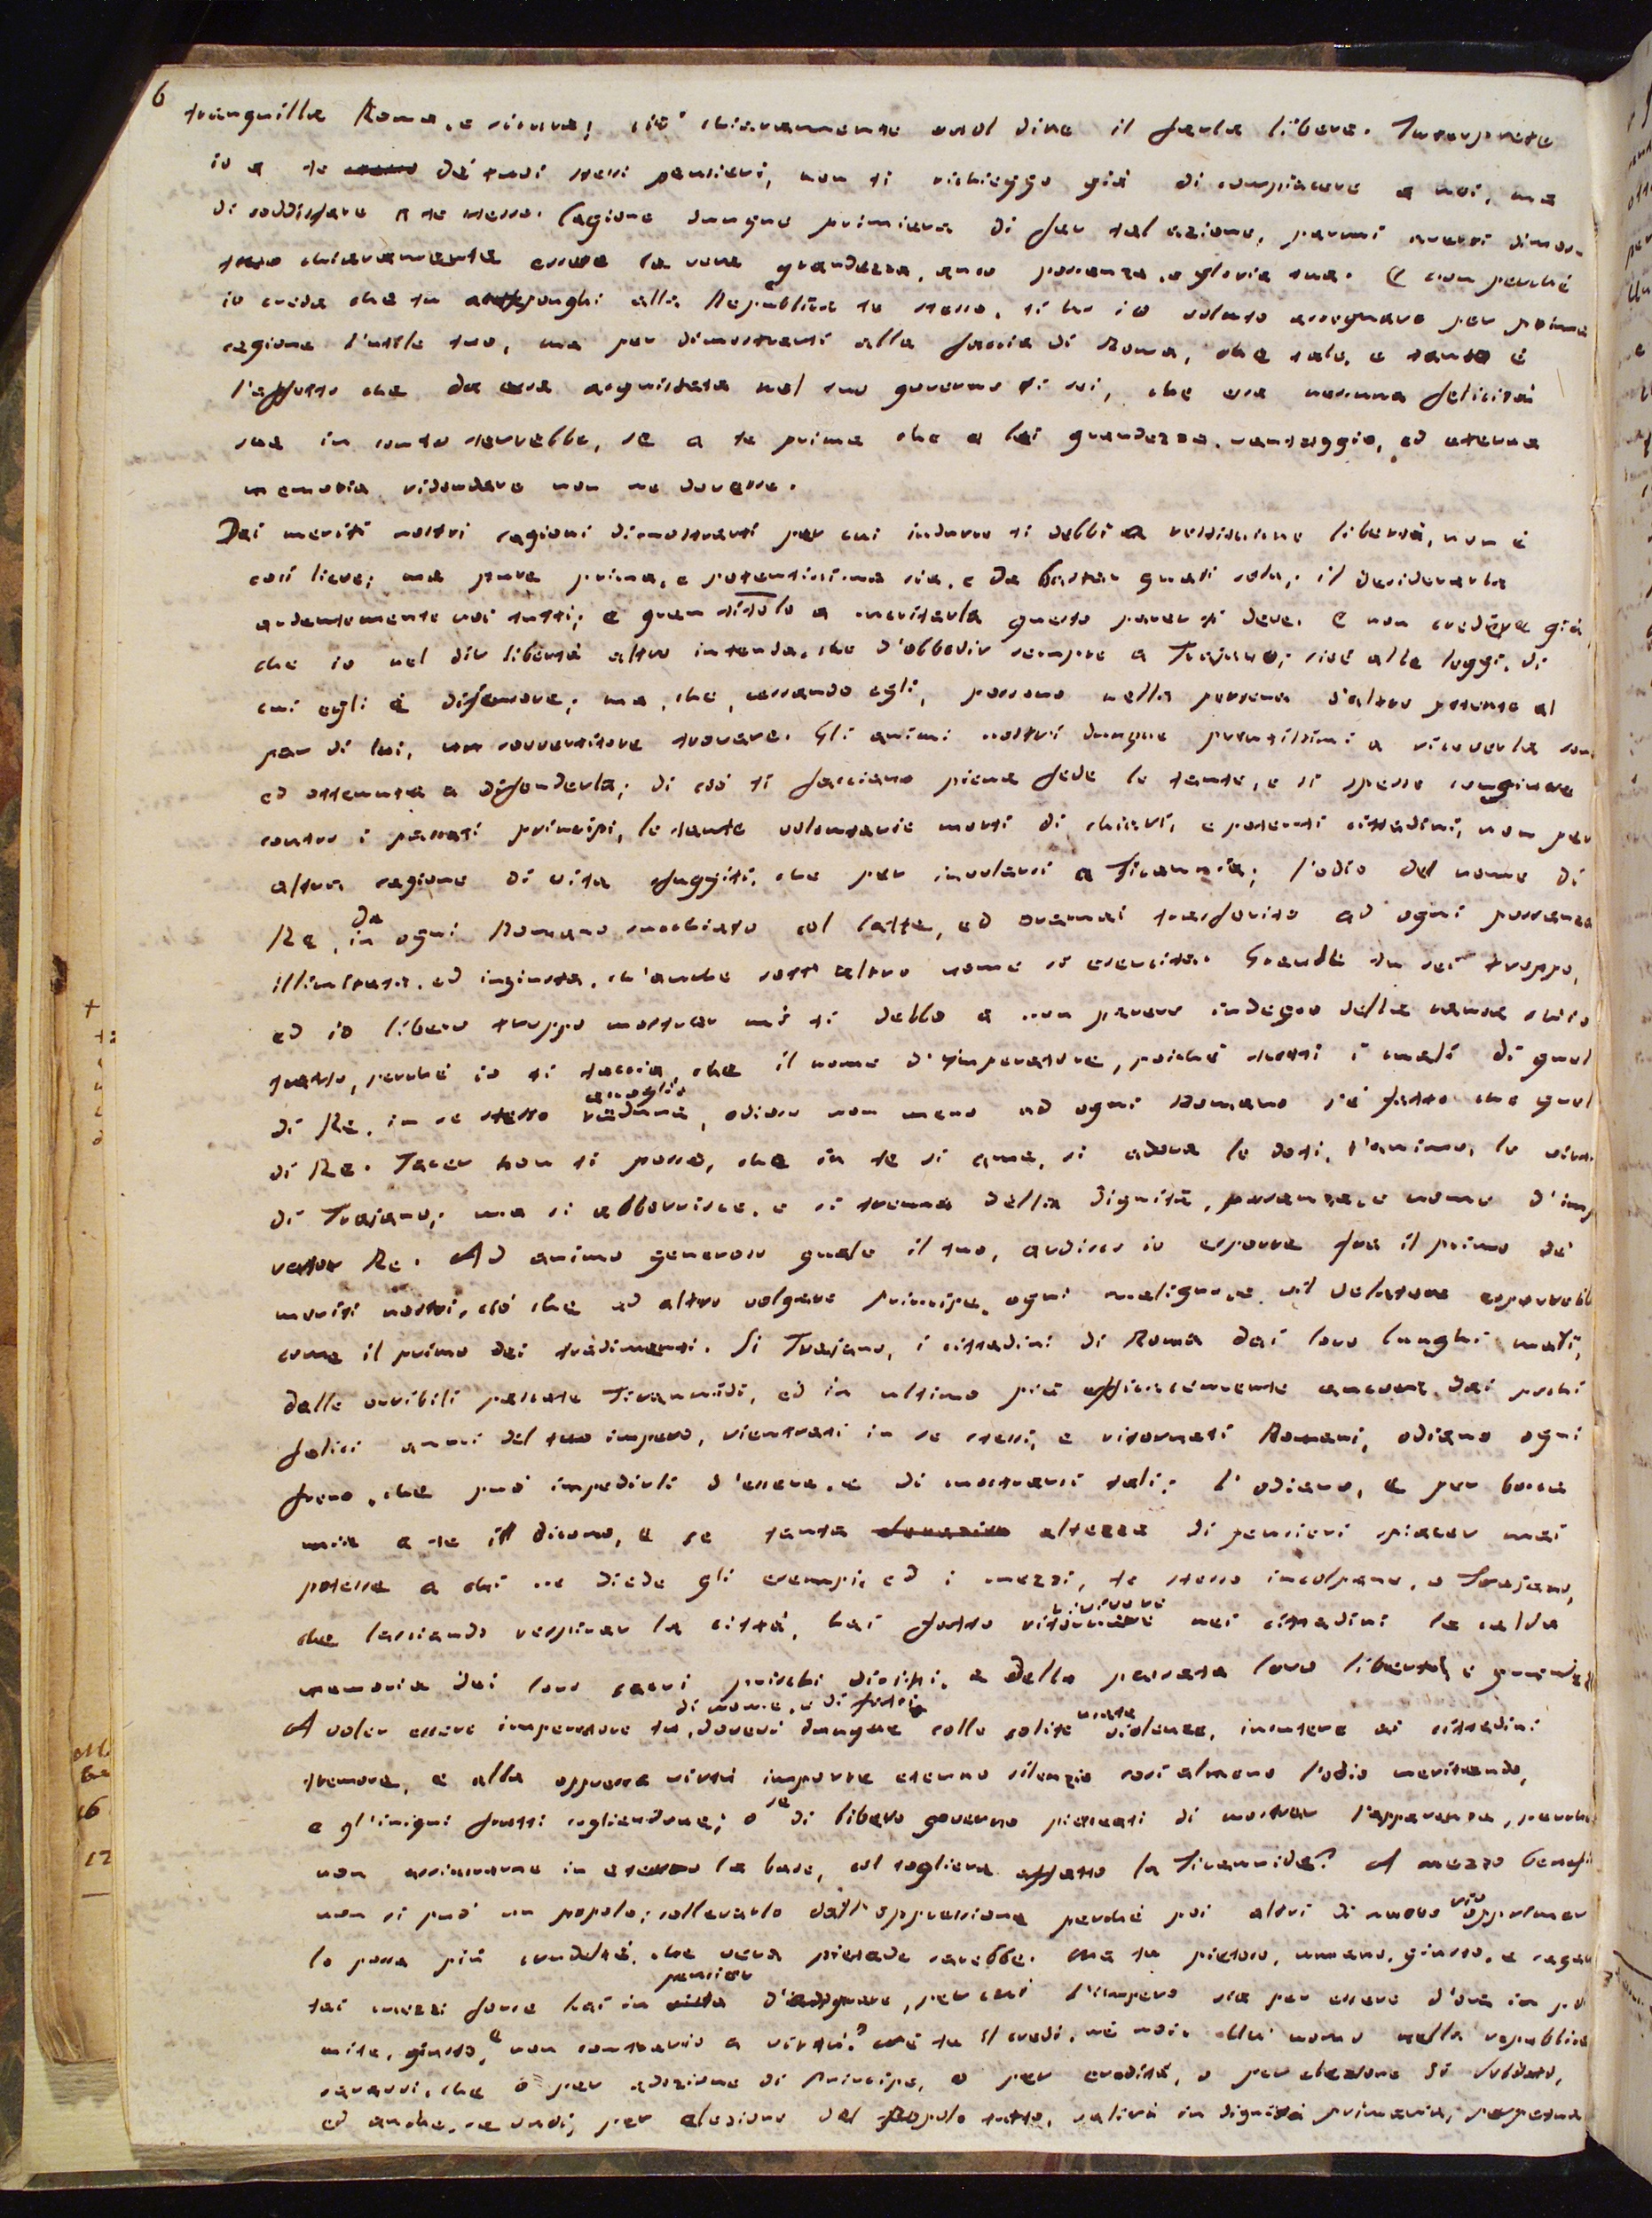 6
tranquilla Roma, e sicura; ciò chiaramente vuol dire il farla libera. Interprete
io a te de' tuoi stessi pensieri, non ti richieggo già di compiacere a noi, ma
di soddisfare a te stesso. Cagione dunque primiera di far tal azione, parmi averti dimos-
trato chiaramente essere la vera grandezza, anco possanza, e gloria tua. E non perché
io creda che tu anteponghi alla Repubblica te stesso, ti ho io voluto assegnare per prima
cagione l'utile tuo, ma per dimostrarti alla faccia di Roma, che tale, e tanto è
l'affetto che da essa acquistato nel tuo governo ti sei, che essa nessuna felicità
sua in conto terrebbe, se a te prima che a lei grandezza, vantaggio, ed eterna
memoria ridondare non ne dovesse.
Dei meriti nostri cagioni dimostrarti per cui indurre ti debbi a restituirne libertà, non è
così lieve; ma pure prima, e potentissima sia, e da bastar quasi sola, il desiderarla
ardentemente noi tutti; e gran titolo a meritarla questo parer ti deve. E non credere già
che io nel dir libertà altro intenda, che d'obbedir sempre a Trajano; cioè alle leggi, di
cui egli è difensore; ma, che, cessando egli, possano nella persona d'altro potente al
par di lui, un sovvertitore trovare. Gli animi nostri dunque prontissimi a riceverla son
ed ottenuta a difenderla; di ciò ti facciano piena fede le tante, e sì spesse congiure
contro i passati principi, le tante volontarie morti di chiari, e potenti cittadini, non per
altra cagione di vita fuggiti, che per involarsi a Tirannia; l'odio del nome di
Re, in
da
ogni Romano succhiato col latte, ed oramai trasferito ad ogni possanza
illimitata, ed ingiusta, ch'anche sott'altro nome si eserciti. Grande tu sei troppo,
ed io libero troppo mostrar mi ti debbo a non parere indegno della causa ch'io
tratto, perché io ti taccia, che il nome d'Imperatore, poiché tutti i mali di quel
di Re, in se stesso raduna
accoglie
, odioso non meno ad ogni Romano s'è fatto che quel
di Re. Tacer non ti posso, che in te si ama, si adora le doti, l'animo, le virtù
di Trajano; ma si abborrisce, e si trema della dignità, possanza, e nome d'imp
rator Re. Ad animo generoso quale il tuo, ardisco io esporre fra il primo de'
meriti nostri, ciò che ad altro volgare Principe, ogni maligno, e vil delatore esporrebb
come il primo dei tradimenti. Sì Trajano, i cittadini di Roma dai loro lunghi mali,
dalle orribili passate Tirannidi, ed in ultimo più efficacemente ancora, dai pochi
felici anni del tuo impero, rientrati in se stessi, e ritornati Romani, odiano ogni
freno, che può impedirli d'essere, e di mostrarsi tali; l'odiano, e per bocca
mia a te il dicono, e se tanta altezza di pensieri spiacer mai
potesse a chi ne diede gli esempi, ed i mezzi, te stesso incolpane, o Trajano,
che lasciando respirar la città, hai fatto ritornare
rivivere
nei cittadini la calda
memoria dei loro sacri prischi diritti, e della passata loro libertà, e grandezza
A voler essere imperatore tu,
di nome, e di fatti
dovevi dunque colle solite
usate
violenze, incutere ai cittadini
tremore, e alla oppressa virtù imporre eterno silenzio così almeno l'odio meritando,
e gl'iniqui frutti cogliendone; o
se
di libero governo piaceati di mostrar l'apparenza, perché
non assicurarne in eterno la base, col togliere affatto la Tirannide? A mezzo benefi
non si può un popolo; sollevarlo dall'oppressione perché poi altri di nuovo
vie
opprimer
lo possa più crudeltà, che vera pietade sarebbe. Ma tu pietoso, umano, giusto, e sagace
tai mezzi forse hai in
pensier
d'adoprare, per cui l'impero sia per essere d'ora in po
mite, giusto,
e
non contrario a virtù? Né tu il credi, né noi. Un uomo nella repubblica
saravvi, che o per adozione di Principe, o per eredità, o per elezione di soldati,
ed anche, se vuoi, per elezione del Popolo tutto, salirà in dignità primaria, perpetua